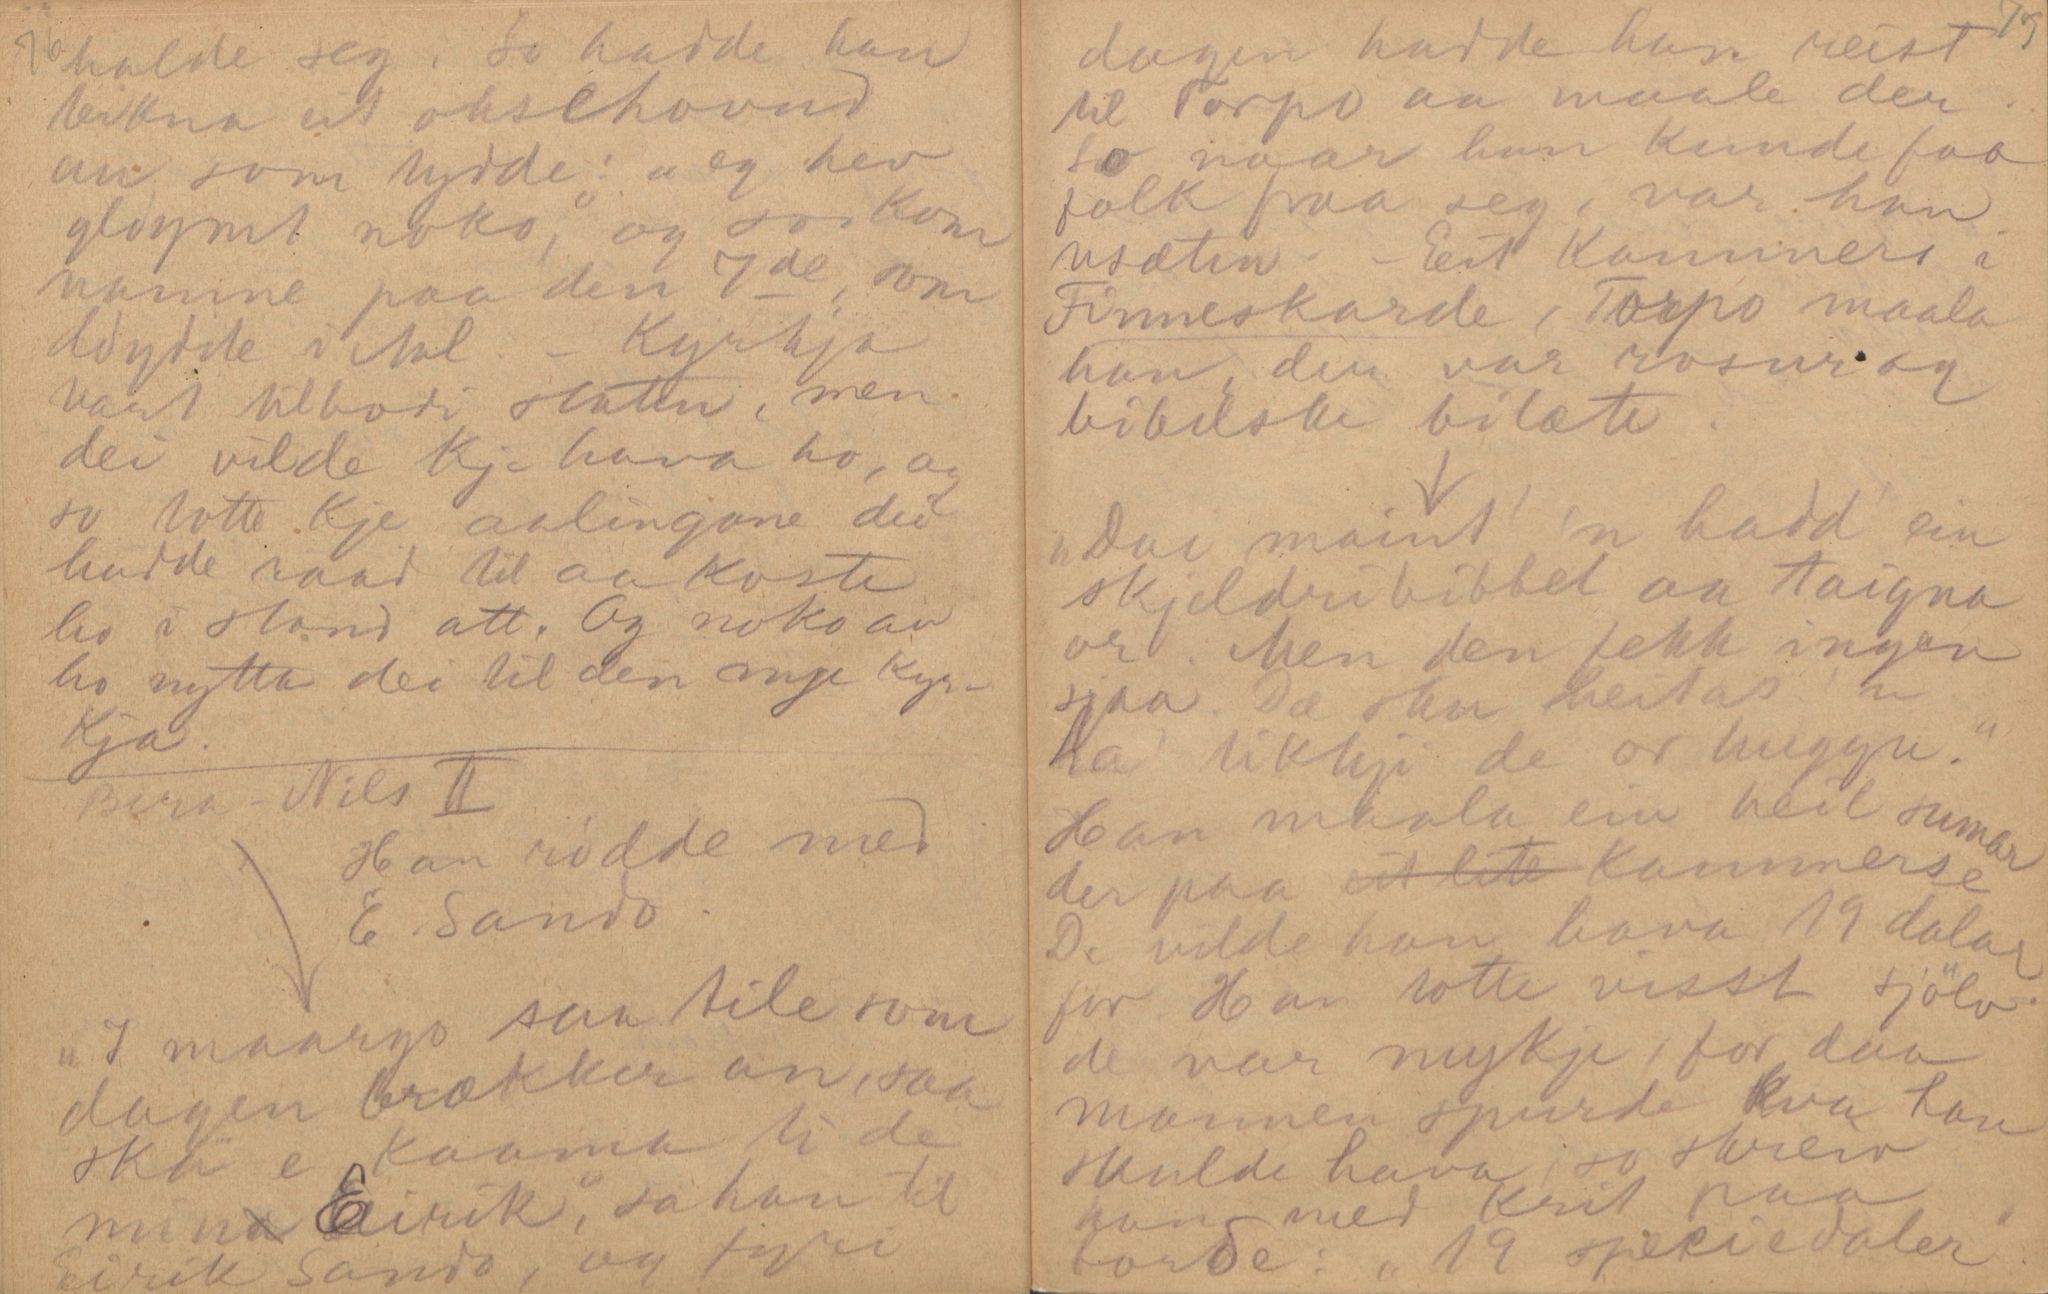 76
halde seg. So hadde han
teikna eit okselhovud
an som tydde: "eg hev
gløymt noko," og so kom
namne paa den 7de, som
døydde i Aal. - Kyrkja
vart tilbodi staten, men
dei vilde kje hava ho, og
so totte kje aalingane dei
hadde raad til aa koste
ho i stand att. Og noko av
ho nytta dei til den nye kyr-
kja.
Bera-Nils II
Han rødde med
E. Sando.
"I maargo saa tile som
dagen brækker an, saa
ska e kaama ti de
min Eirik," sa han til
Eirik Sando, og fyri
79
dagen hadde han reist
til Torpo aa maale der.
So naar han kunde faa
folk fraa seg, var han
usæten. - Eit kammers i
Finneskarde, Torpo maala
han, der var rosur og
bibelske bilæte.
"Dai maint' 'n hadd' ein
skjeldribibbel aa taigna
or. Men den fekk ingen
sjaa. Dæ sku heitas 'n
ha' tikkji de or huggu."
Han maala ein heil sumar
der paa eit lite kammerse
De vilde han hava 19 dalar
for. Han totte visst sjölv
de var mykje, for daa
mannen spurde kva han
skulde hava, so skreiv
han med krit paa
borde: "19 speciedaler"